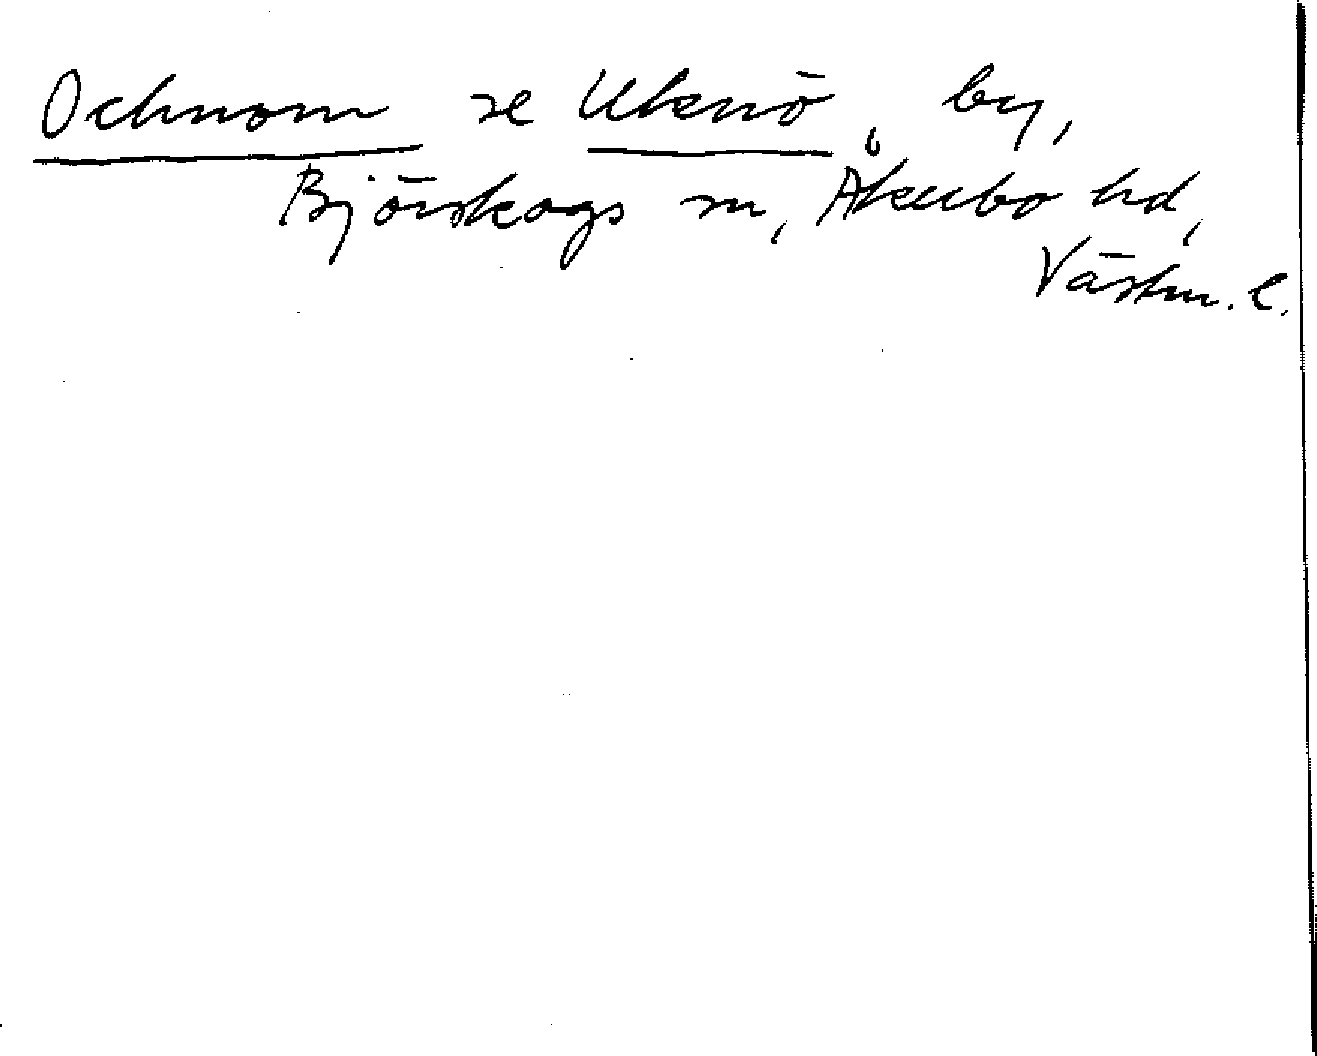 Ochnom se Uknö, by,
Björskogs sn, Åkerbo hd,
Västm. l.